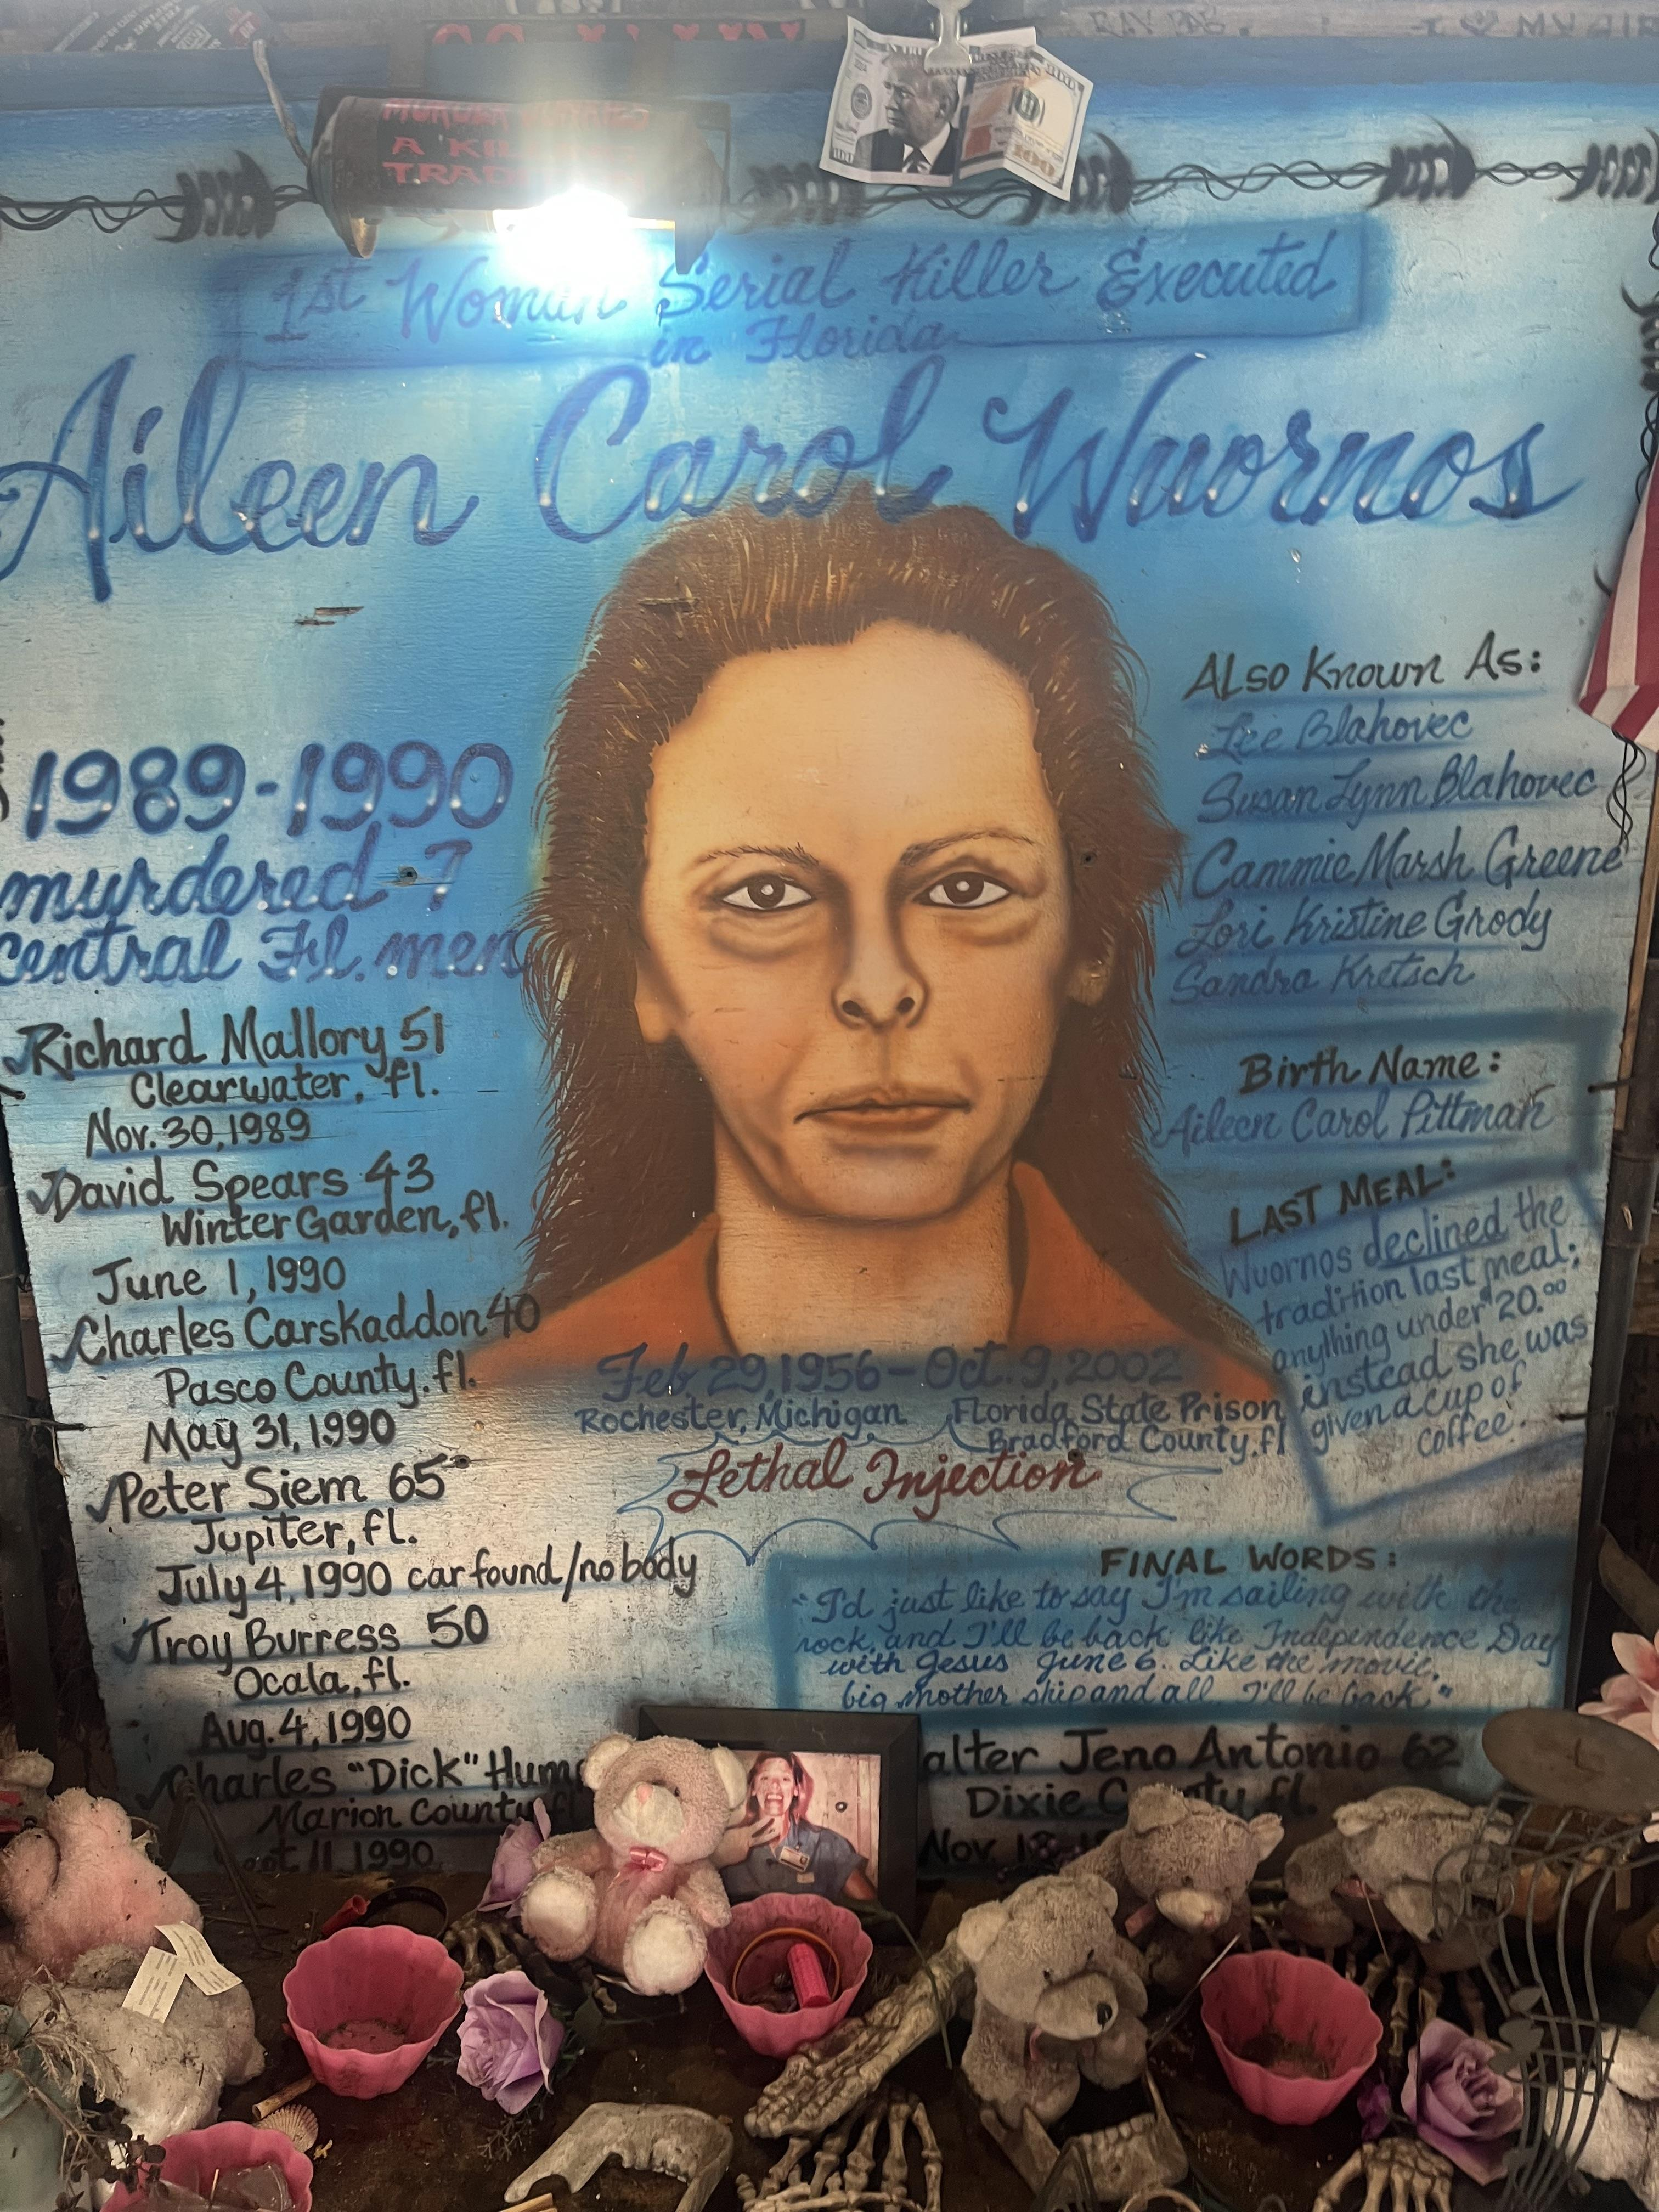 A
TRAD
1st Woman Serial Killer Executed
in Florida
Aileen Carol Wuornos
1989-1990
murdered 7
central Fl. men
Richard Mallory 51
Clearwater, fl.
Nov. 30, 1989
David Spears 43
Winter Garden, fl.
June 1, 1990
Charles Carskaddon 40
Pasco County. fl.
May 31, 1990
Peter Siem 65
Jupiter, fl.
July 4, 1990 car found/no body
Troy Burress 50
Ocala, fl.
Aug. 4, 1990
Charles "Dick" Hum
Marion County fl
ept 11 1990
Also Known As:
Lee Blahovec
Susan Lynn Blahovec
Cammie Marsh Greene
Lori Kristine Grody
Sandra Kretsch
Birth Name:
Aileen Carol Pittman
LAST MEAL:
Wuornos declined the
tradition last meal;
anything under $20.00
instead she was
given a cup of
coffee.
Feb 29, 1956 - Oct. 9, 2002
Rochester, Michigan
Florida State Prison
Bradford County, fl
Lethal Injection
FINAL WORDS:
"I'd just like to say I'm sailing with the
rock, and I'll be back like Independence Day
with Jesus June 6. Like the movie,
big mother ship and all I'll be back."
alter Jeno Antonio 62
Dixie C ty fl.
Nov. 1
100
100